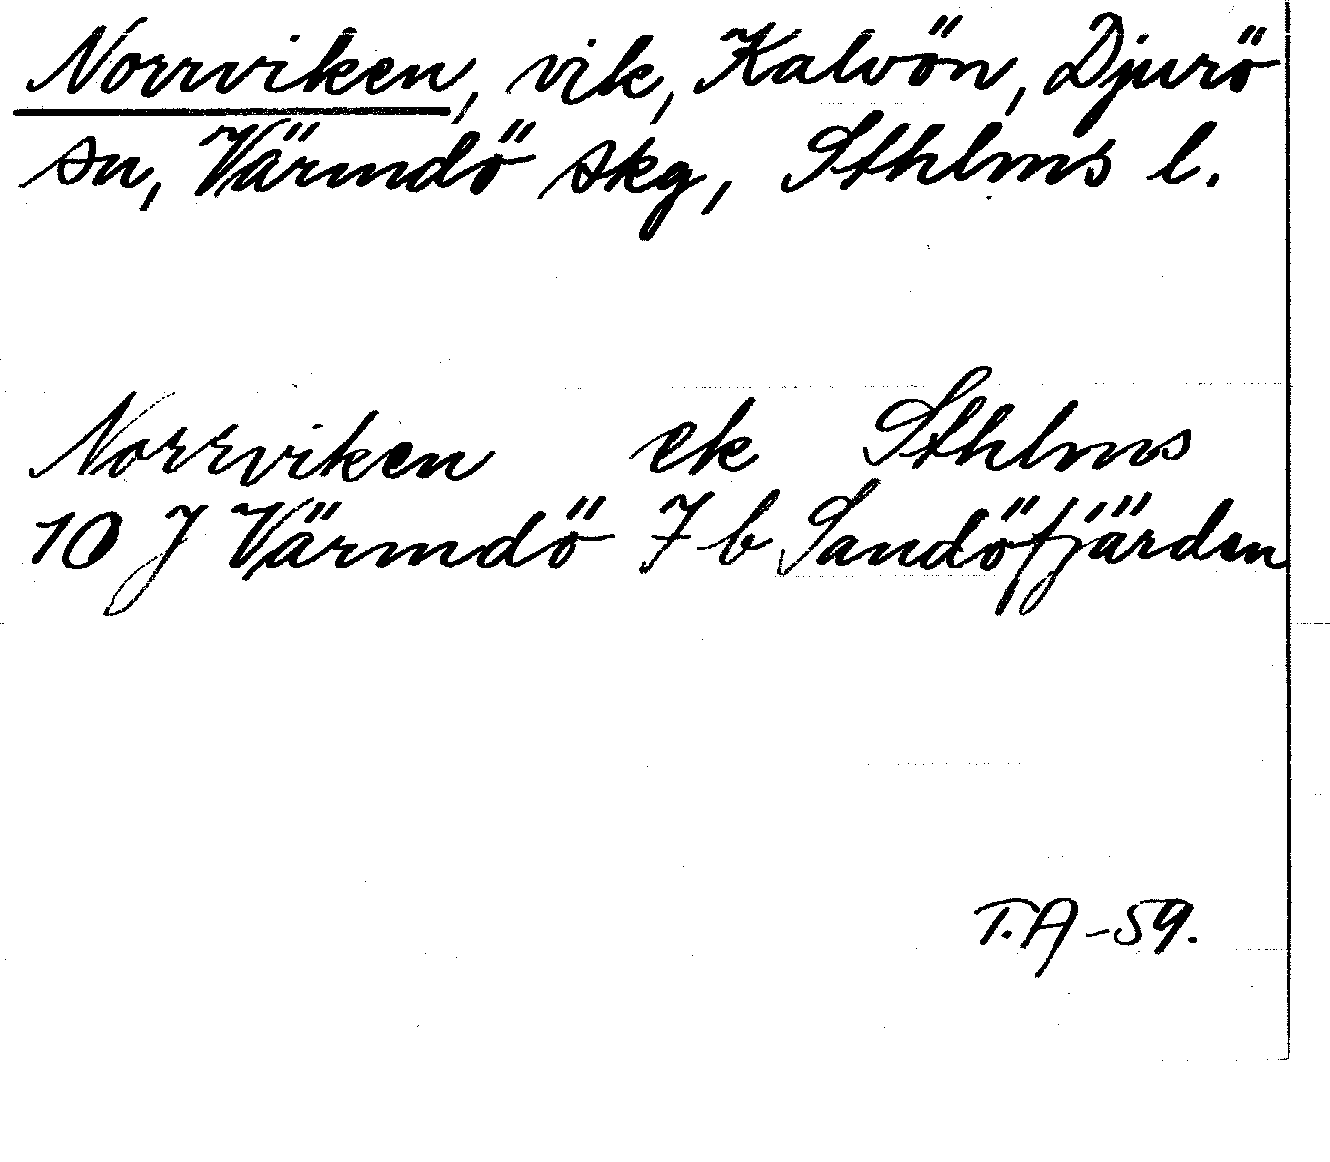 Norrviken, vik, Kalvön, Djurö
sn, Värmdö skg, Sthlms l.
Norrviken ek Sthlms
10 J Värmdö 7 b Sandöfjärden
T.A -59.